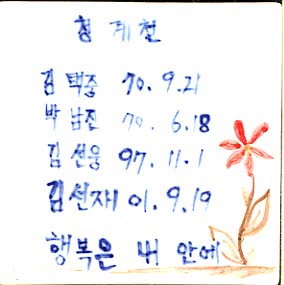 청계천
김택중 70. 9. 21
박남진 70. 6. 18
김선웅 97. 11. 1
김선재 01. 9. 19
행복은 내 안에